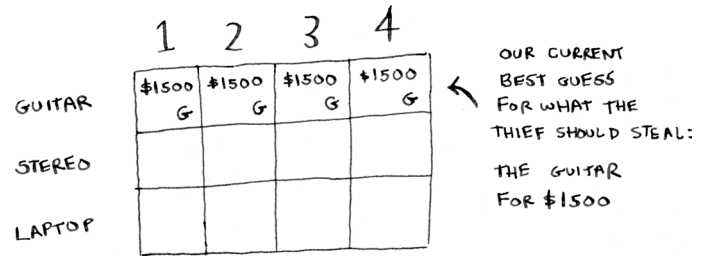 1 2 3 4
GUITAR $1500 G $1500 G $1500 G $1500 G
STEREO
LAPTOP
OUR CURRENT
BEST GUESS
FOR WHAT THE
THIEF SHOULD STEAL:
THE GUITAR
FOR $1500